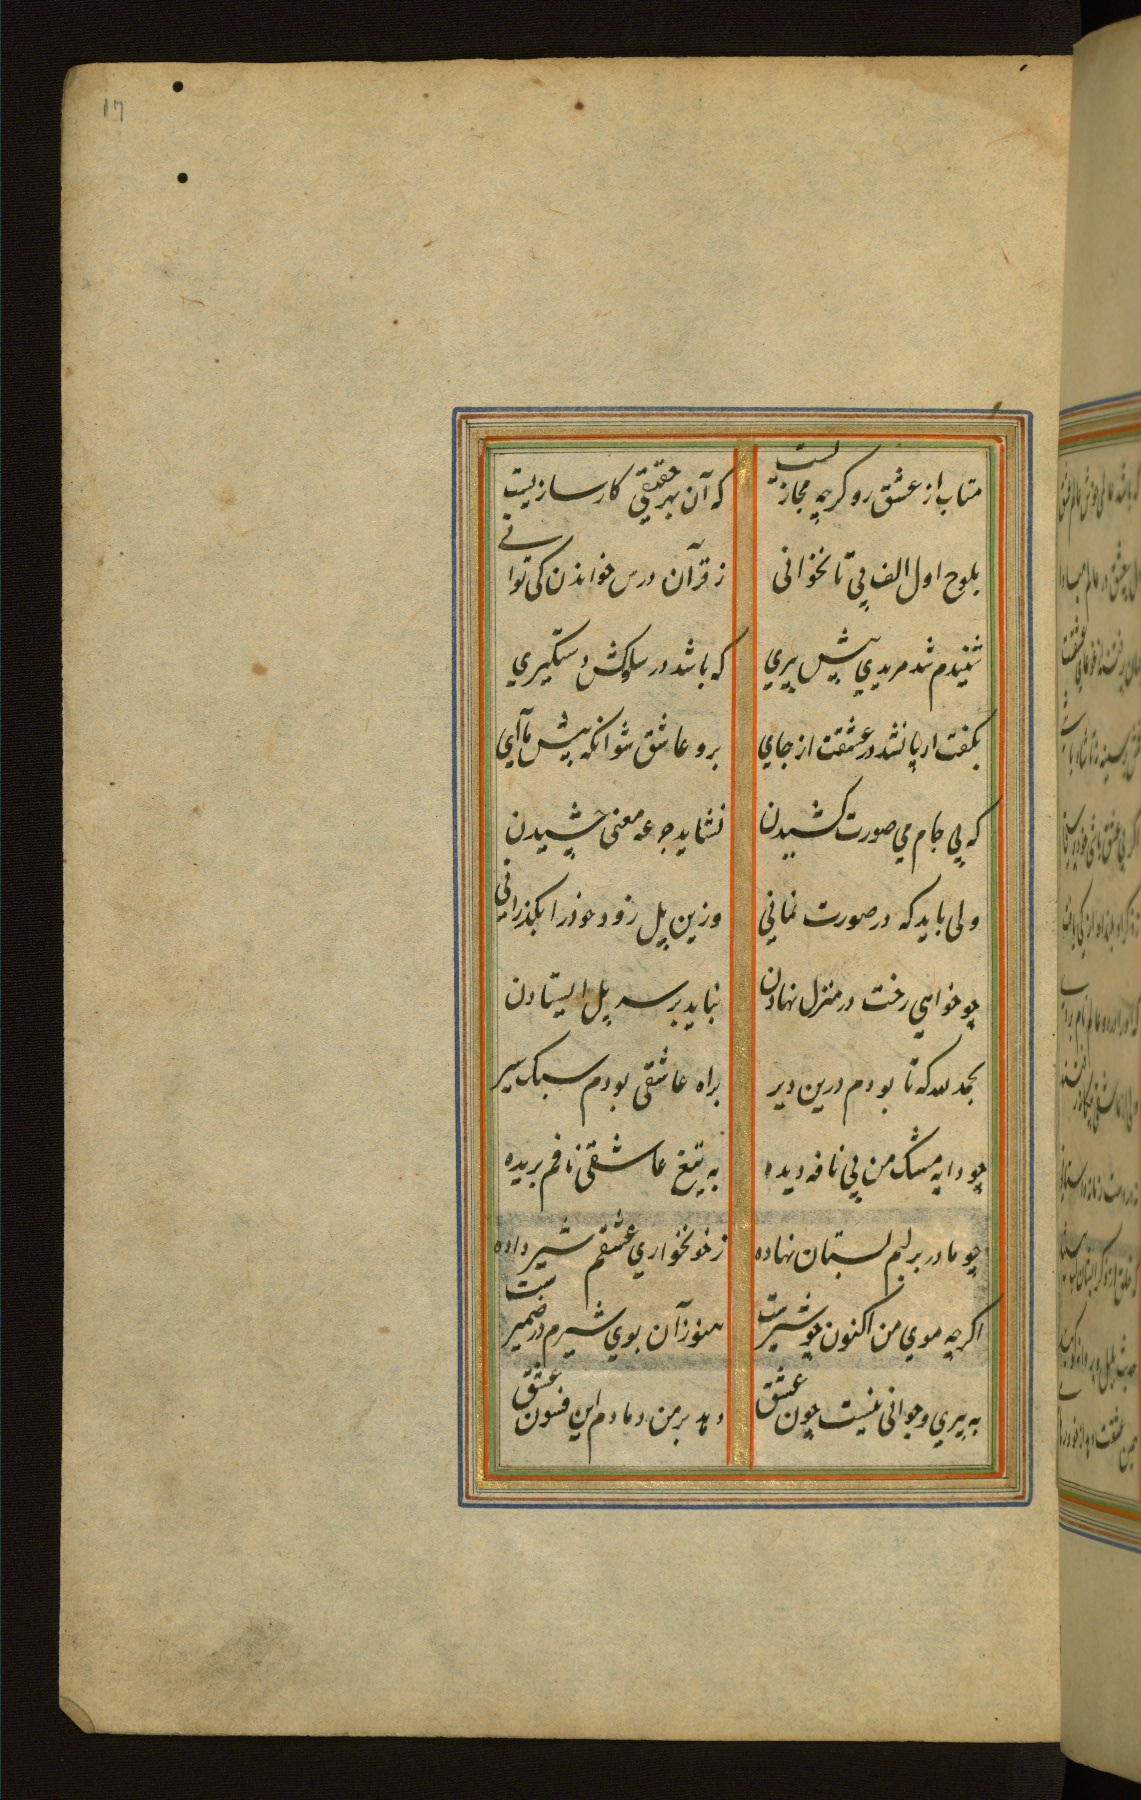 17
متاب از عشق رو گرچه مجازیست
که آن بهر حقیقی کارسازیست
بلوح اول الف بی تا نخوانی
ز قرآن درس خواندن کی توانی
شنیدم شد مریدی پیش پیری
که باشد در سلوکش دستگیری
بگفت ار پا نشد در عشقت از جای
برو عاشق شو آنگه پیش ما آی
که بی جام می صورت کشیدن
نشاید جرعه معنی چشیدن
ولی باید که در صورت نمانی
وزین پل زود خود را بگذرانی
چو خواهی رخت در منزل نهادن
نباید بر سر پل ایستادن
بحمد لله که تا بودم درین دیر
براه عاشقی بودم سبک سیر
چو دایه مشک من بی نافه دیده
به تیغ عاشقی نافم بریده
چو مادر بر لبم پستان نهاده
ز خونخواری عشقم شیر داده
اگرچه موی من اکنون چو شیرست
هنوز آن بوی شیرم در ضمیرست
به پیری و جوانی نیست چون عشق
دهد بر من دمادم این فسون عشق